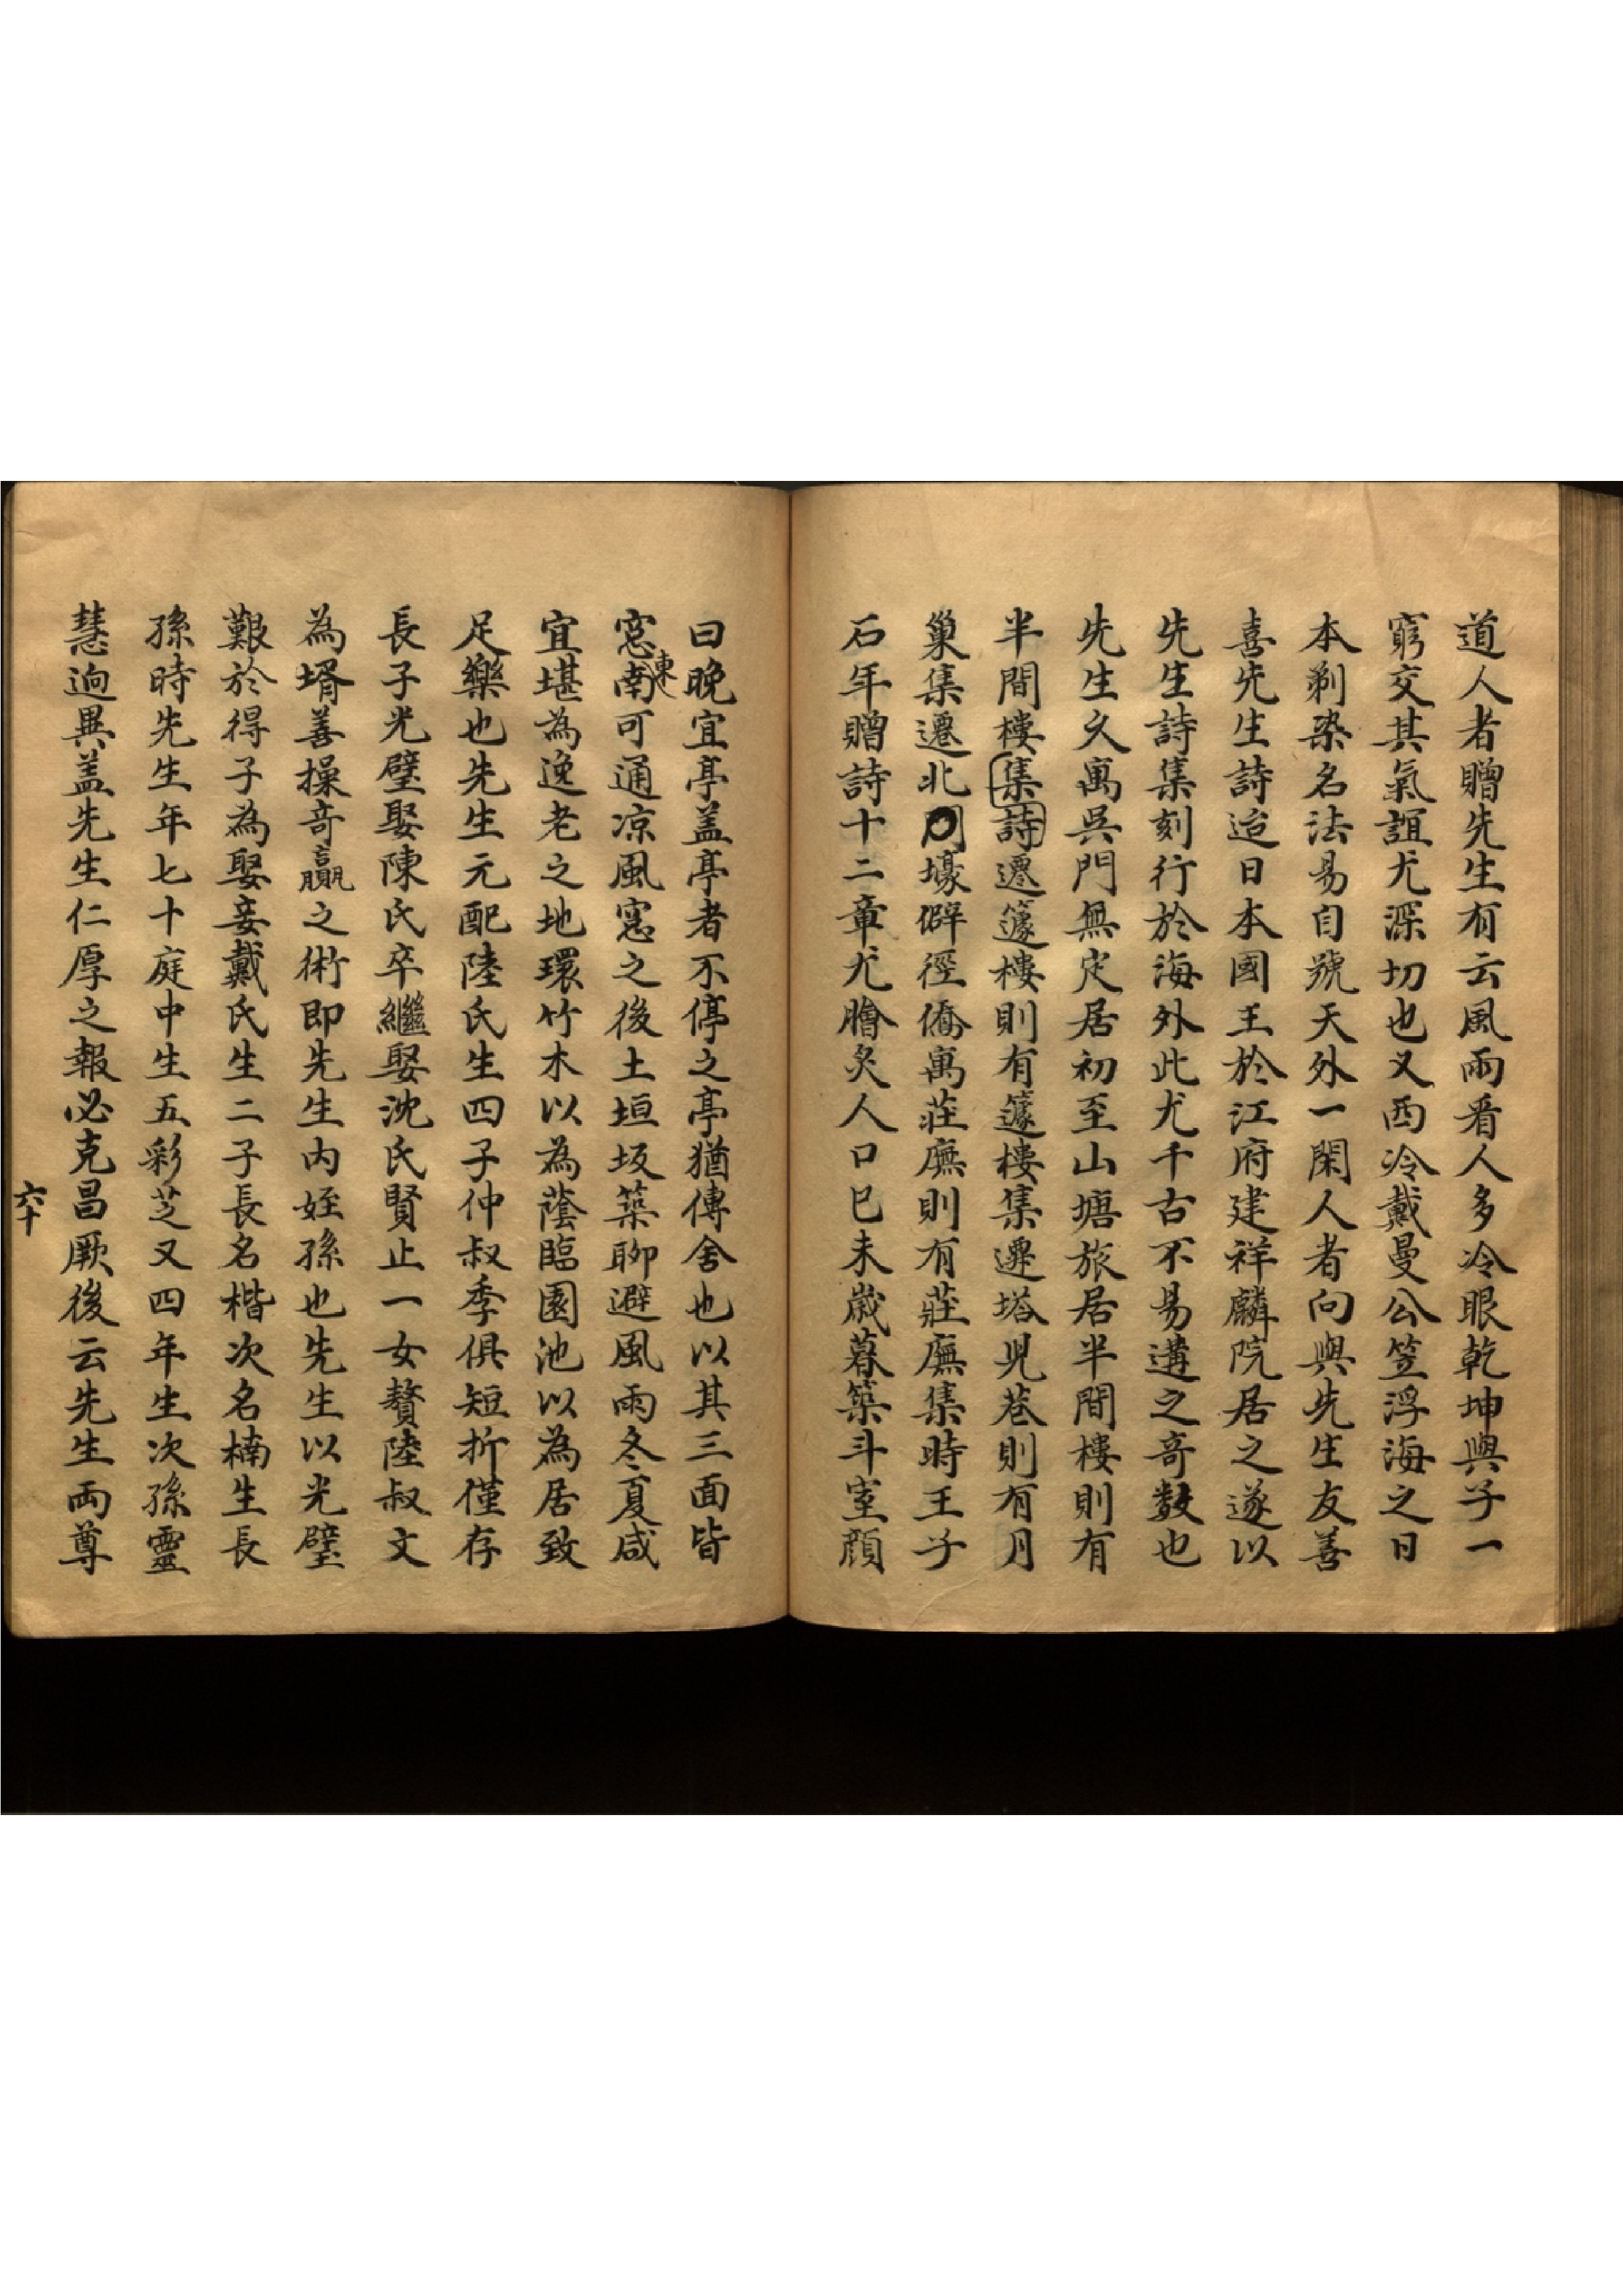 道人者贈先生有云風雨看人多冷眼乾坤與子一
窮交其氣誼尤深切也又西冷戴曼公笠浮海之日
本剃染名法易自號天外一閑人者向與先生友善
喜先生詩迨日本國王於江府建祥麟院居之遂以
先生詩集刻行於海外此尤千古不易遘之奇数也
先生久寓吳門無定居初至山塘旅居半間樓則有
半間樓集詩遷籧樓則有籧樓集遷塔兒巷則有月
巢集遷北壕僻徑僑寓莊廡則有莊廡集時王子
石年贈詩十二章尤膾炙人口巳未歲暮築斗室顔
曰晚宜亭盖亭者不停之亭猶傳舍也以其三面皆
窓東南可通凉風窓之後土垣坂築聊避風雨冬夏咸
宜堪為逸老之地環竹木以為蔭臨園池以為居致
足樂也先生元配陸氏生四子仲叔季俱短折僅存
長子光璧娶陳氏卒繼娶沈氏賢止一女贅陸叔文
為壻善操奇贏之術即先生内姪孫也先生以光璧
艱於得子為娶妾戴氏生二子長名楷次名楠生長
孫時先生年七十庭中生五彩芝又四年生次孫靈
慧逈異盖先生仁厚之報必克昌厥後云先生両尊
六十